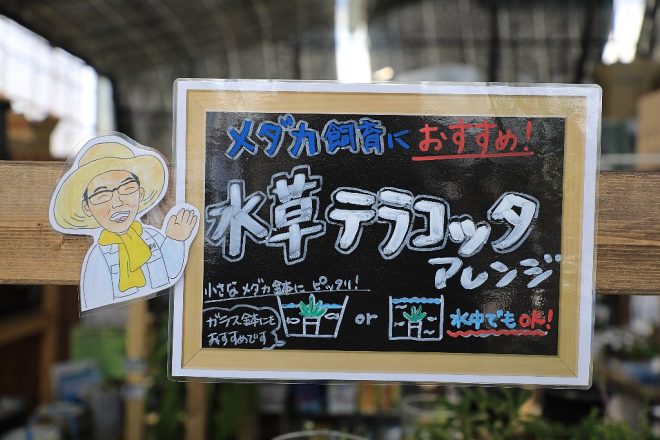 メダカ飼育に おすすめ!
水草テラコッタ
アレンジ
小さなメダカ鉢に ピッタリ!
ガラス鉢にも
おすすめです
or
水中でもOK!